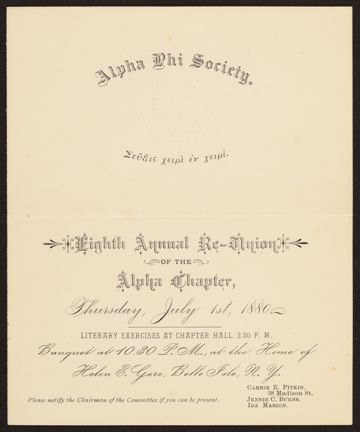 Alpha Phi Society.
Σεῦξις χειρὶ ἐν χειρί.
Eighth Annual Re-Union
OF THE
Alpha Chapter,
Thursday, July 1st, 1880
LITERARY EXERCISES AT CHAPTER HALL, 2.30 P. M.
Banquet at 10 30 P. M., at the Home of
Helen E. Gere, Belle Isle, N. Y.
CARRIE E. PITKIN,
38 Madison St.
JENNIE C. BURNS,
IDA MARION.
Please notify the Chairman of the Committee if you can be present.